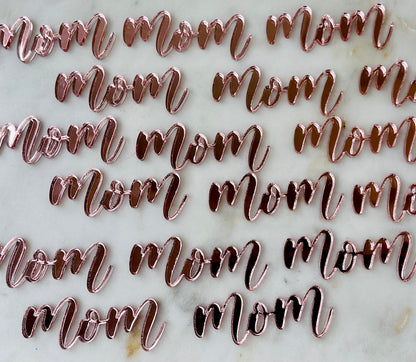 mom mom mom
mom mom mom
mom mom mom
mom mom mom
mom mom mom
mom mom